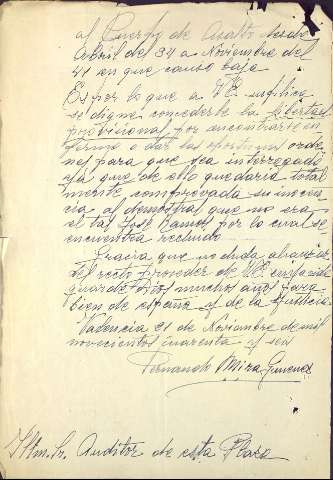 al Cuerpo de Asalto desde
Abril de 34 a Noviembre del
41 en que causo baja
Es por lo que a V.E. suplica
se digne concederle la libertad
provisional por encontrarse en
fermo o dar las oportunas orde
nes para que sea interrogado
ya que de ello quedaria total
mente comprovada su inocen
cia al demostrar que no era
el tal José Ramos por lo cual se
encuentra recluido
Gracia que no duda alcanzar
del recto proceder de V.E. cuya vida
guarde Dios muchos años para
bien de españa y de la Justicia
Valencia 21 de Noviembre de mil
novecientos cuarenta y seis
Fernando Mira Gimenez
Iltm. Sr. Auditor de esta Plaza